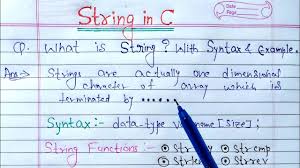 String in C
Date
Page
Q. What is String? With Syntax & Example.
Ans→ Strings are actually one dimensional
character of array which is
terminated by
Syntax:- data-type v name [size];
String Functions:- Strcpy Strcmp
Strlen Strrev